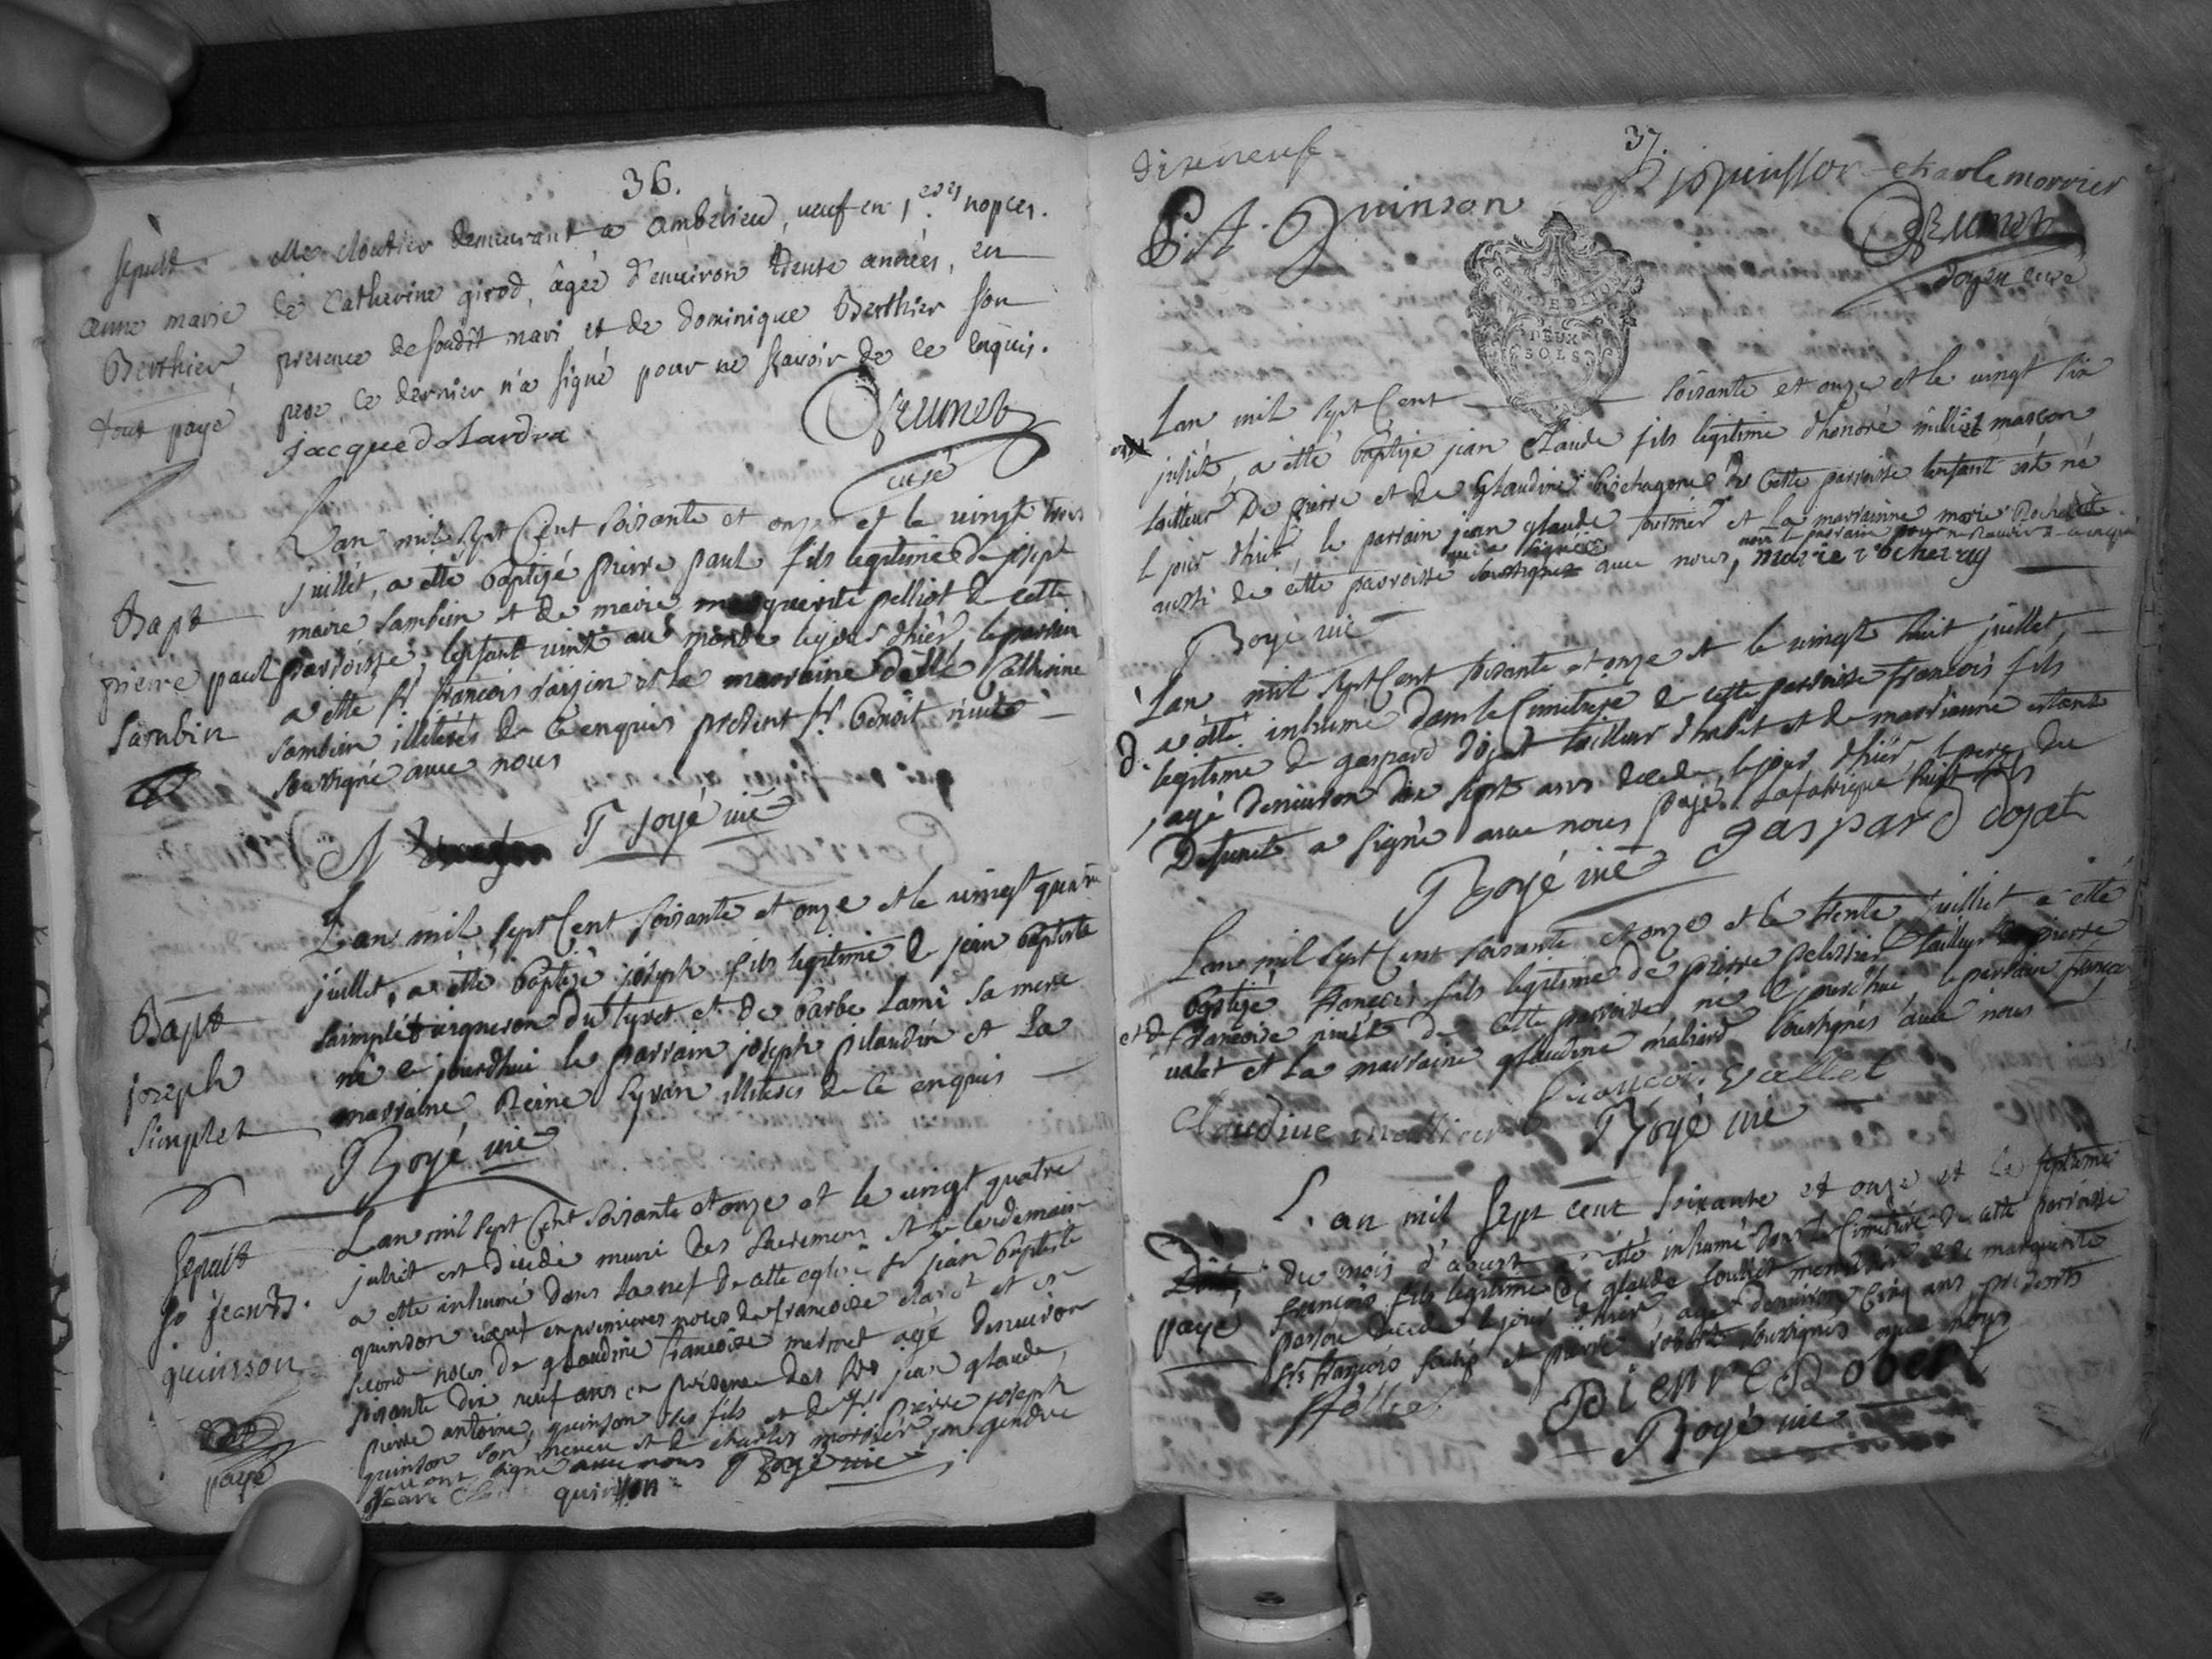 36.
sepult
anne marie
Berthier
tout payé
me cloutier demeurant a amberieu, veuf en 1eres nopces.
de Catherine girod, âgée d'environ trente années, en
presence de soudit mari et de dominique Berthier son
pere, ce dernier n'a signé pour ne sçavoir de ce enquis.
jacque dolardra
Brumet
curé
Bapt
pierre paul
Sambin
Lan mil sept Cent soixante et onze et le vingt trois
juillet, a etté baptizé pierre paul fils legitime de josept
marie Sambin et de marie marguerite pelliot de cette
parroisse, lenfant vint au monde le jour dhier, le parrain
a etté sr francois et la marraine delle Catherine
Sambin illiterés de ce enquis present sr benoit
soussigné avec nous
T Royé vic
Bapt
joseph
Simplet
Lan mil sept Cent soixante et onze et le vingt quatre
juillet, a été baptizé joseph fils legitime de jean baptiste
saimplet vigneron du tyret et de barbe Lami sa mere
né le jourdhui le parrain joseph pilaudin et La
marraine Reine Syvan illiterés de ce enquis
T Royé vic
sepult
sr jean B.
quinson
payé
Lan mil sept Cent soixante et onze et le vingt quatre
juliet est décédé muni des sacremens et le lendemain
a etté inhumé dans la nef de cette eglise sr jean baptiste
quinson veuf en premieres noces de francoise claret et en
seconde noces de glaudine francoise mermet agé denviron
soixante dix neuf ans en presence des srs jean glaude,
pierre antoine, quinson ses fils et de srs pierre joseph
quinson son neveu et de charles morrier son gendre
qui ont signé avec nous T Royé vic
jean quinson
37.
dixneuf
P. A. Quinson
jp quinsson charle morrier
Brumet
doyen curé
GEN DE DIJON
DEUX
SOLS
Lan mil sept Cent soixante et onze et le vingt six
juliet, a etté baptizé jean Claude fils legitime dhonoré milliet masçon
tailleur De pierre et de Glaudine bochagene de Cette parroisse lenfant est né
le jour dhui le parrain jean glaude fournier et La marrainne marie Rocheret
aussi de cette parroisse qui a signée avec nous, marie rocheray
non le parrain pour ne sçavoir de ce enquis
T Royé vic
Lan mil sept Cent soixante et onze et le vingt huit juillet
a été inhumé dans le Cimetiere de cette parroisse francois fils
legitime de gaspard dojat tailleur dhabit et de marrianne
agé denviron dix sept ans décédé le jour dhier, le pere du
Defunt a signé avec nous payé Lafabrique huit sols
T Royé vic gaspard dojat
Lan mil sept Cent soixante et onze et le trente juilliet a etté
baptizé francois fils legitime de pierre pelissier tailleur de pierre
et de francoise de cette parroisse né le jourdhui, le parrain francois
valet et la marraine glaudine soussignés avec nous
francois vallet
Claudine
T Royé vic
payé
L'an mil sept cent soixante et onze et le septieme
du mois d'aoust a été inhumé dans le Cimetiere de cette parroisse
francois fils legitime de glaude et de marguerite
décédé le jour dhier, agé denviron cinq ans, presents
srs francois et pierre robert soussignés avec nous
pierre Robert
T Royé vic